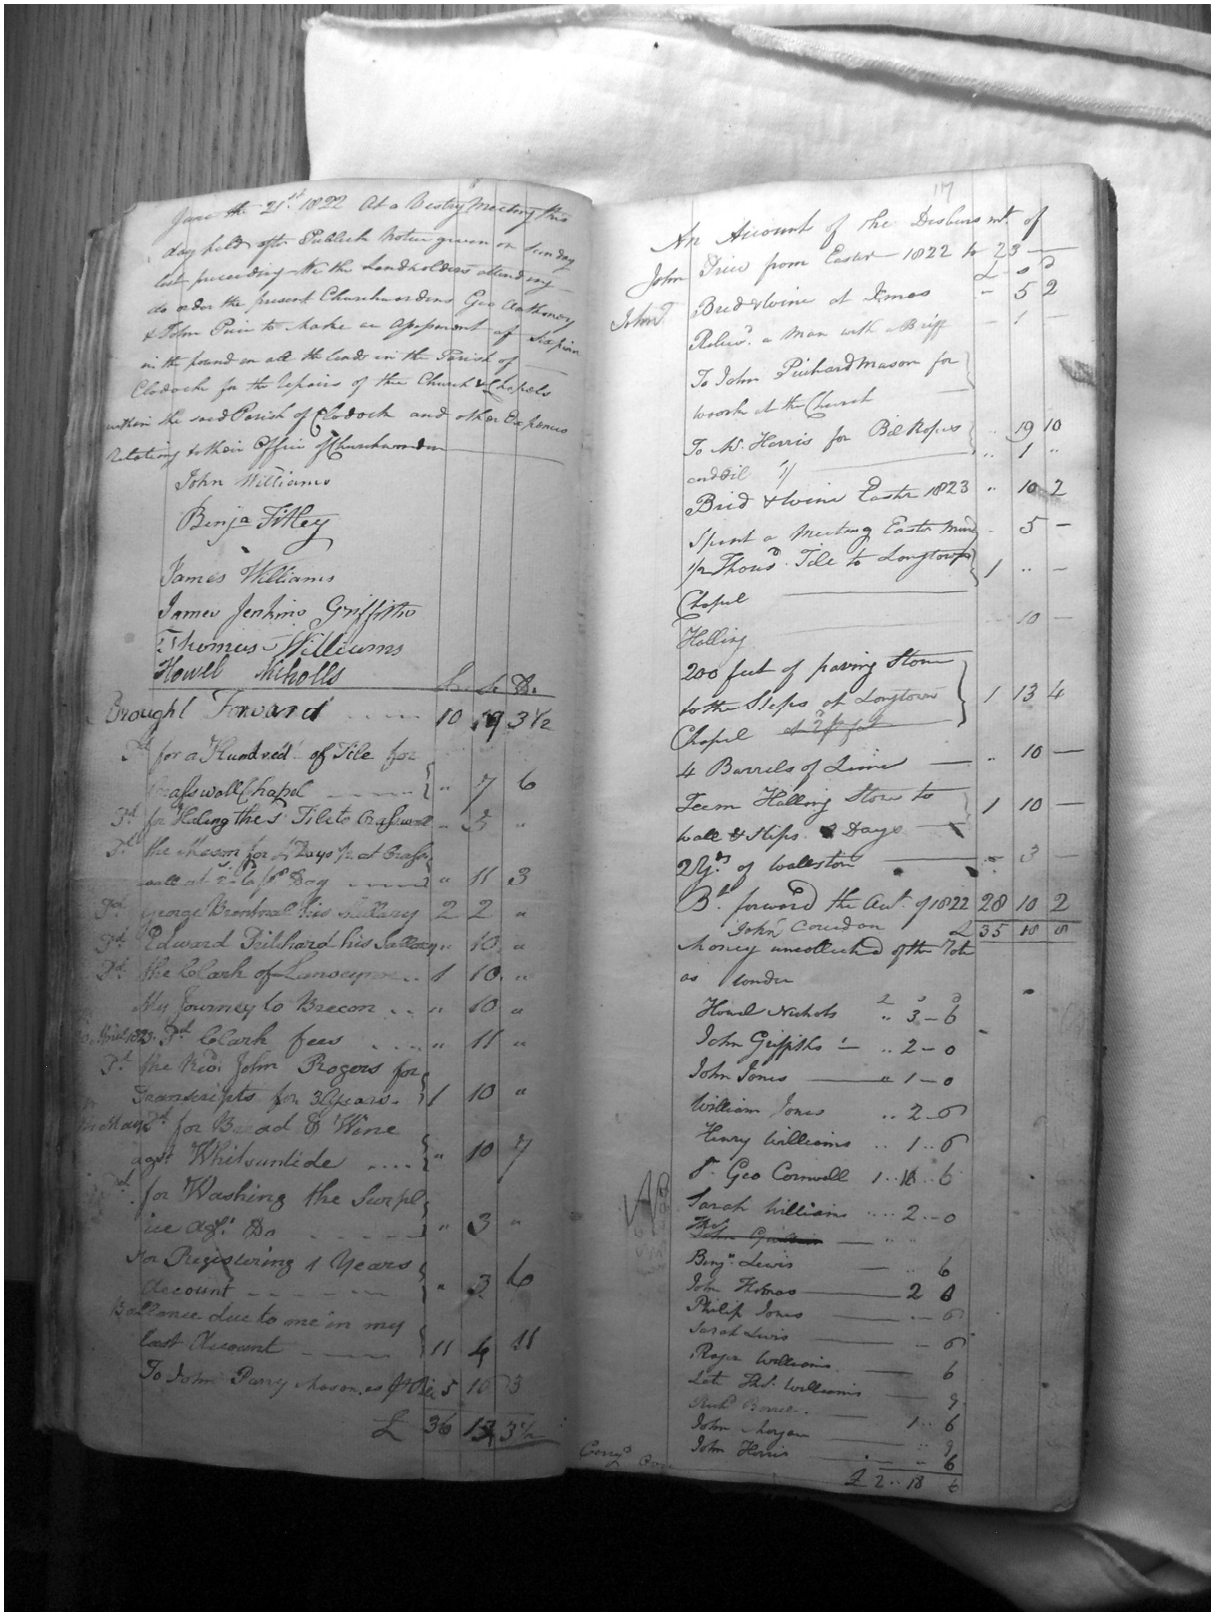 June the 21st 1822 At a Vestry Meeting this
day held after Publick Notice given on Sunday
last preceeding We the Landholders attending
do order the present Churchwardens Geo Anthoney
& John Price to Make an Apspment of Six pence
in the pound on all the Lands in the Parish of
Clodock for the Repairs of the Church & Chapels
within the said Parish of Clodock and other Expences
relating to their Office of Churchwarden
John Williams
Benja Tilley
James Williams
James Jenkins Griffiths
Thomas Williams
Howell Nicholls
Brought Forward 10 19 3 1/2
Pd for a Hundred of Tile for
Crasswall Chapel " 7 6
Pd for Haling the Tile to Crasswall " 5 "
Pd the Mason for Days at Crass
wall at Day " 11 3
Pd George his Sallary 2 2 "
Pd Edward Pritchard his Sallary " 10 "
Pd the Clark of 1 10 "
My Journey to Brecon " 10 "
1823 Pd Clark fees " 11 "
Pd the Revd John Rogers for
Transcripts for 3 Years 1 10 "
May Pd for Bread & Wine
agst Whitsuntide " 10 7
Pd for Washing the Surpl
ice agst Do " 3 "
For Registering 1 Years
Account " 3 6
Ballance due to me in my
last Account 11 4 11
To John Parry Mason as Bill 5 10 3
£ 36 3 1/2
117
An Account of the Disbursmt of
John Price from Easter 1822 to 23
£ s d
John Bred & Wine at Xmas - 5 2
Reliev'd a Man with a Briff - 1 -
To John Prichard Mason for
woork at the Church
To Mr Harris for Bell Ropes " 19 10
and Oil 1/ " 1 "
Bred & Wine Easter 1823 " 10 2
Spent a Meeting Easter Mund - 5 -
1/2 Thousd Tile to Longtown 1 " -
Chapel
Halling 10 -
200 feet of paving Stone
to the Steps at Longtown 1 13 4
Chapel
4 Barrels of Lime " 10 -
Teem Halling Stone to 1 10 -
wall & Steps 2 Days
2 Yds of wallston - 3 -
Bt forward the Act of 1822 28 10 2
John £ 35 18 8
Money uncollected of the
as under
£ s d
Howel Nichols " 3 - 6
John Griffiths " 2 - 0
John Jones " 1 - 0
William Jones " 2 - 6
Henry Williams " 1 " 6
Geo Cornwell 1 " 18 " 6
Sarah Williams " 2 - 0
Benjn Lewis 6
John Thomas 2 6
Philip Jones 6
Sarah Lewis 6
Roger Williams 6
Late Thos Williams 9
Richd 1 " 6
John Morgan 9
John Harris 6
£ 2 " 18 6